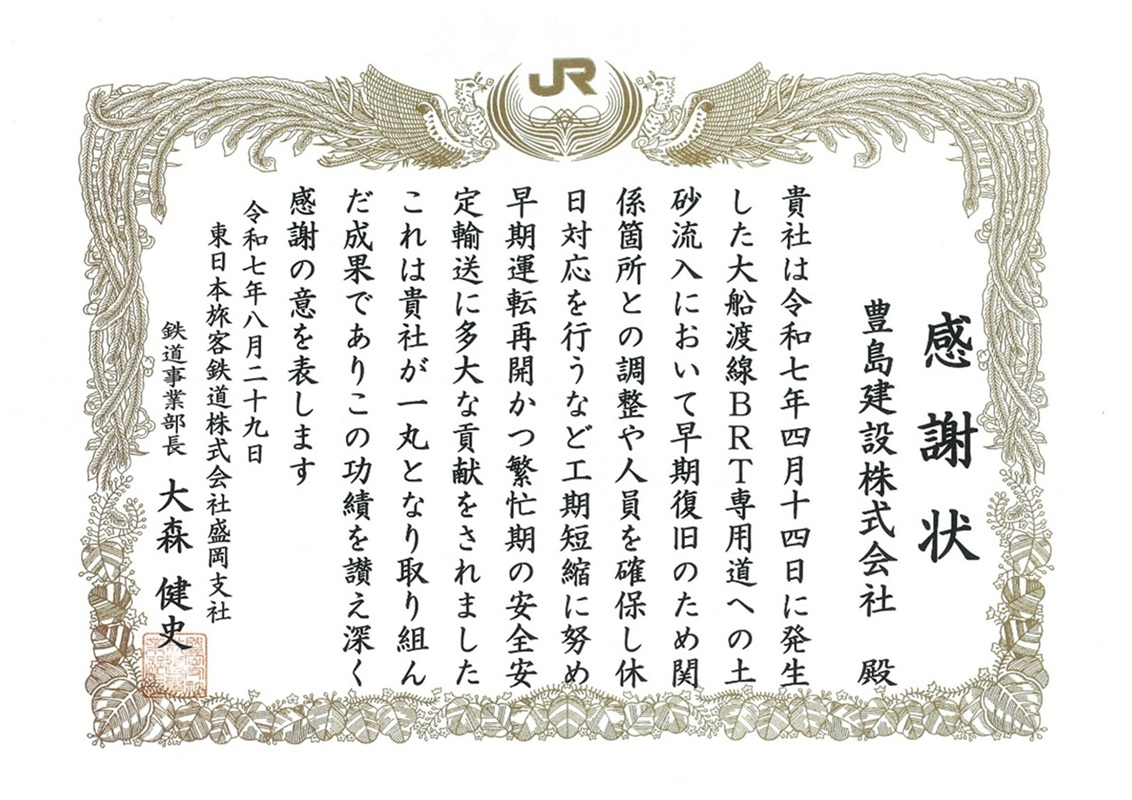 JR
感謝状
豊島建設株式会社 殿
貴社は令和七年四月十四日に発生
した大船渡線ＢＲＴ専用道への土
砂流入において早期復旧のため関
係箇所との調整や人員を確保し休
日対応を行うなど工期短縮に努め
早期運転再開かつ繁忙期の安全安
定輸送に多大な貢献をされました
これは貴社が一丸となり取り組ん
だ成果でありこの功績を讃え深く
感謝の意を表します
令和七年八月二十九日
東日本旅客鉄道株式会社盛岡支社
鉄道事業部長 大森 健史